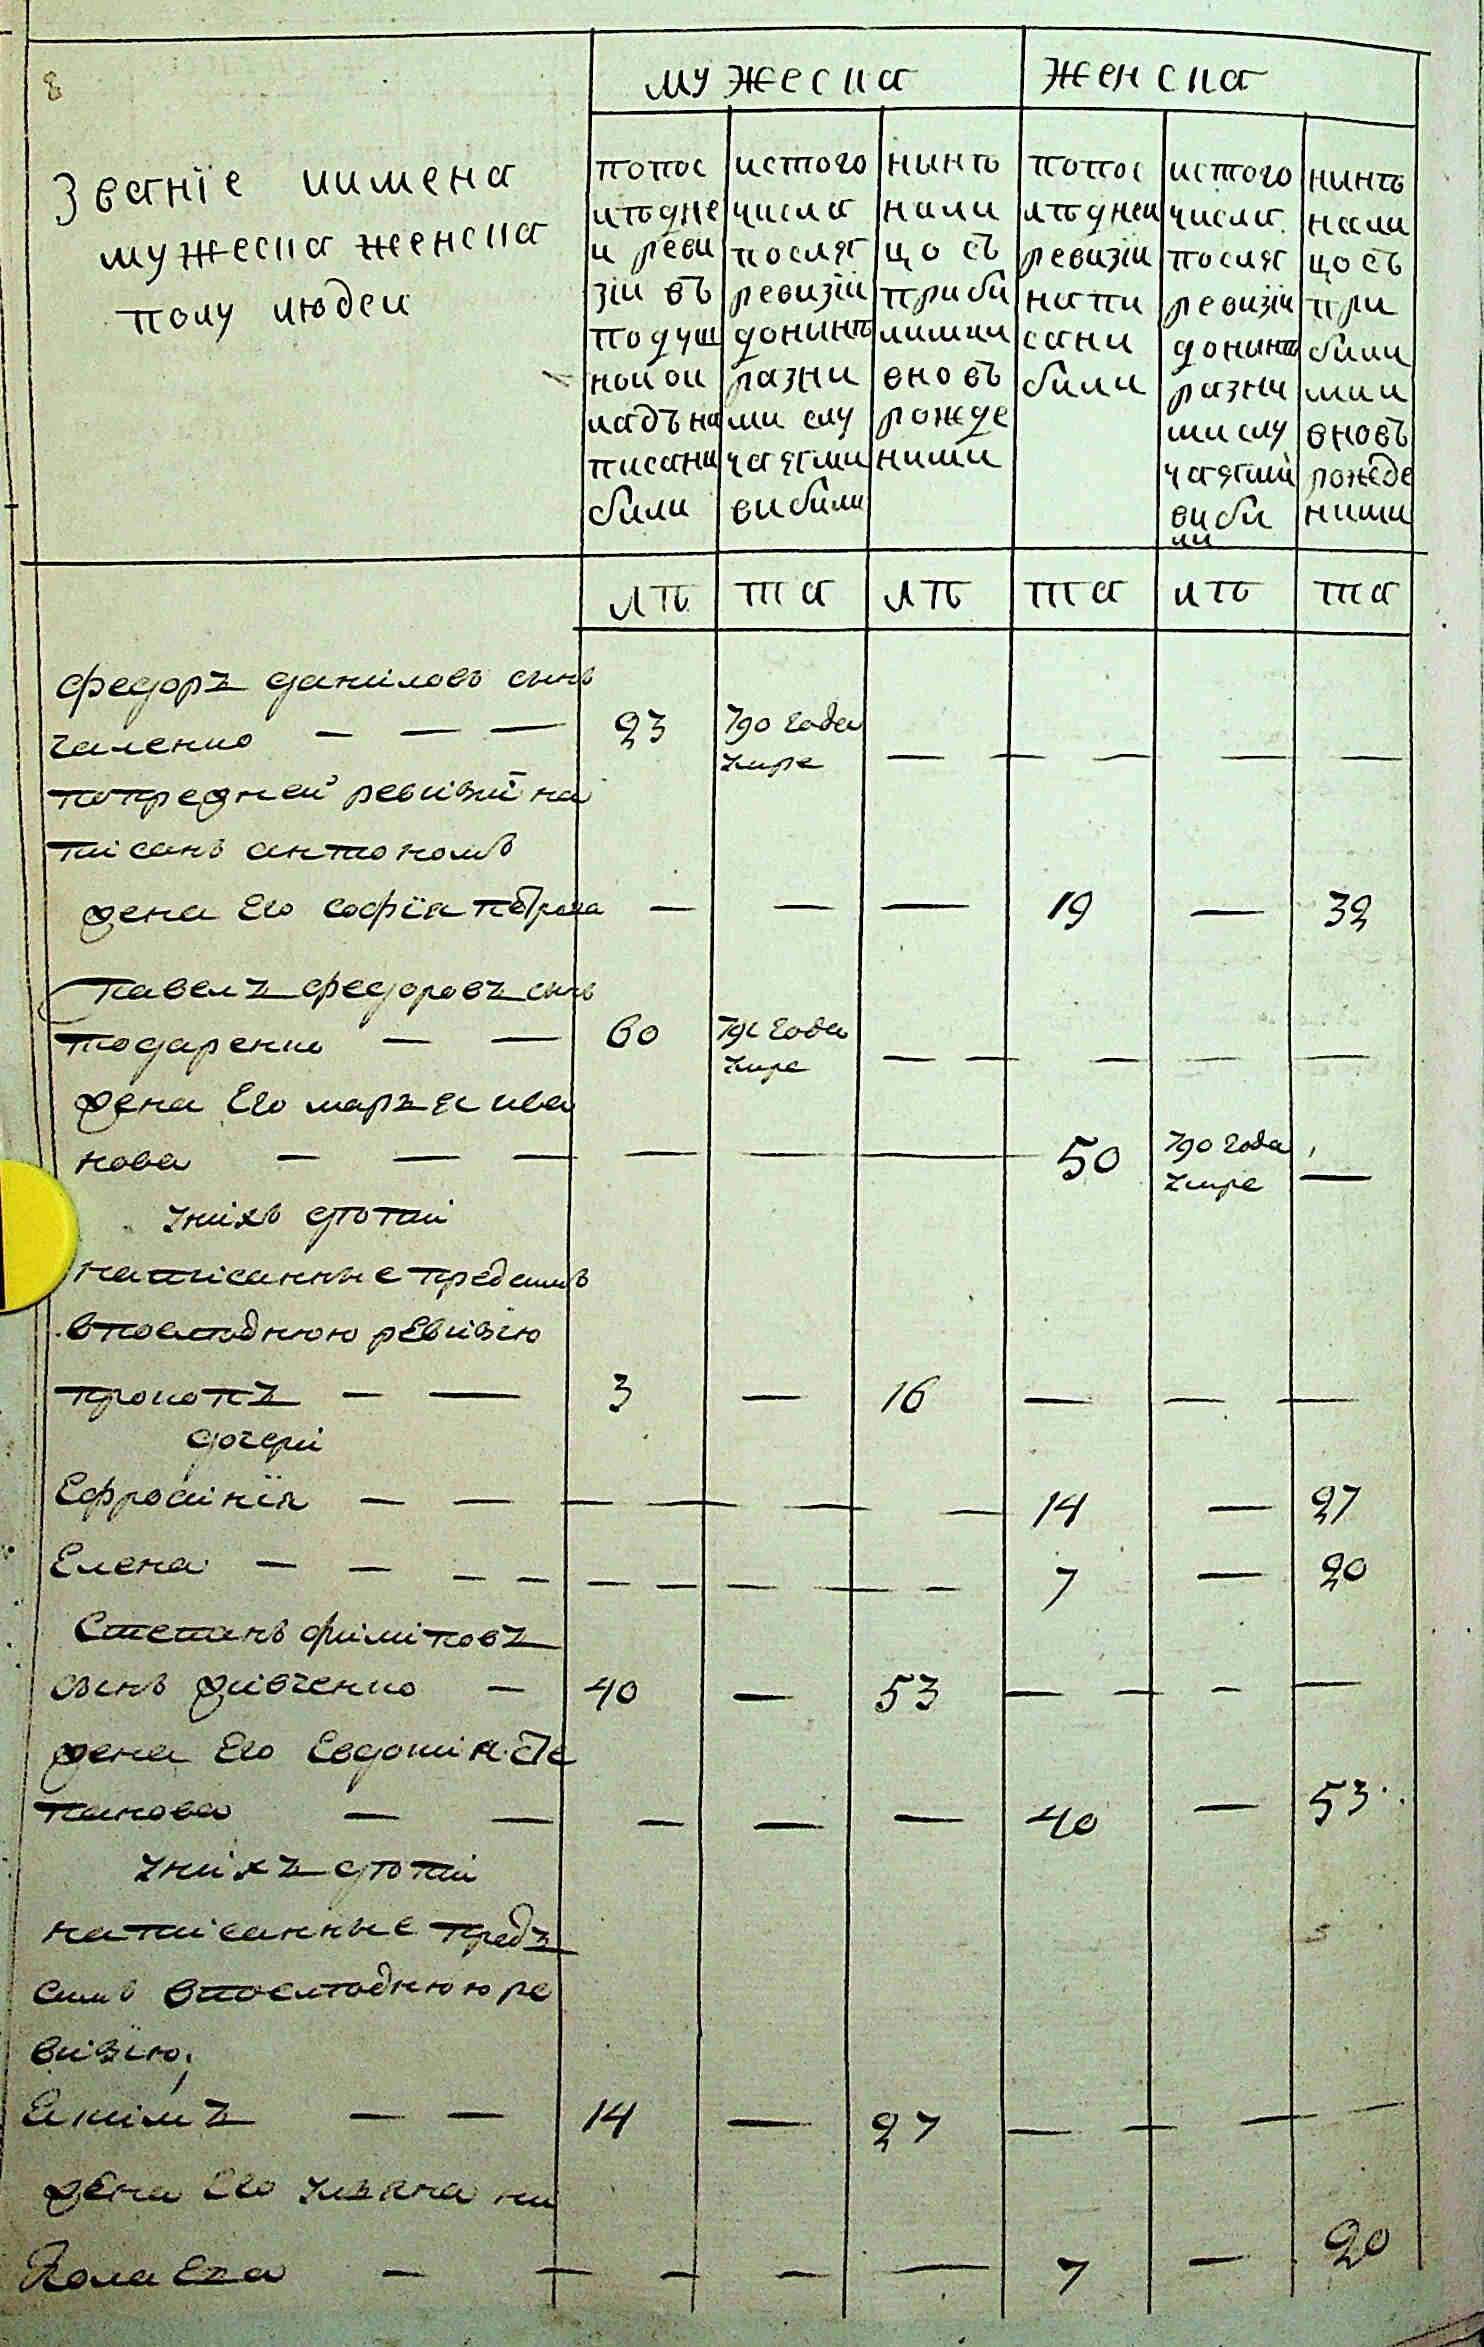 8
мужеска женска
Званїе иимена
мужеска женска
полу людеи
попос
лѣдне
и реви
зіи въ
подуш
нои ок
ладъ на
писани
били
истого
числа
посля
ревизіи
донынѣ
разни
ми слу
чаями
вибили
нынѣ
нали
цо съ
приби
лими
вновъ
рожде
ними
попос
лѣднеи
ревизіи
напи
сани
били
истого
числа
посля
ревизіи
донынѣ
разни
ми слу
чаями
виби
ли
нынѣ
нали
цо съ
при
били
ми
вновъ
рожде
ними
лѣ та лѣ та лѣ та
федоръ данiловъ сынъ
галенко — — — 23 790 года — — — — —
умре
попредней ревизиї на
писанъ антономъ
жена Его софїя петрова — — — 19 — 32
павелъ федоровъ сынъ
подаренко — — 60 791 года — — — — —
умре
жена Его маръя ива
нова — — — — — — 50 790 года —
умре
унихъ дѣти
написанные предсимъ
впослѣднюю ревизiю
прокопъ — — 3 — 16 — — —
дочери
Ефросинїя — — — — — — 14 — 27
Елена — — — — — — — — — 7 — 20
Степанъ филiповъ
сынъ живченко — 40 — 53 — — — —
жена Его Евдокия сте
панова — — — — — 40 — 53
унихъ дѣти
написанные предъ
симъ впослѣднюю ре
визїю;
Якимъ — — 14 — 27 — — — —
жена Его уляна ни
колаева — — — — — 7 — 20